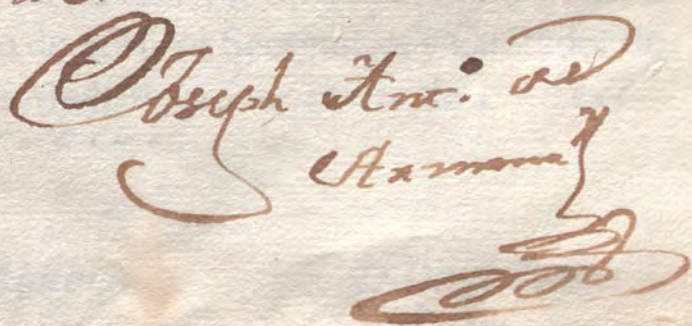 Joseph Ant.º de
Armona